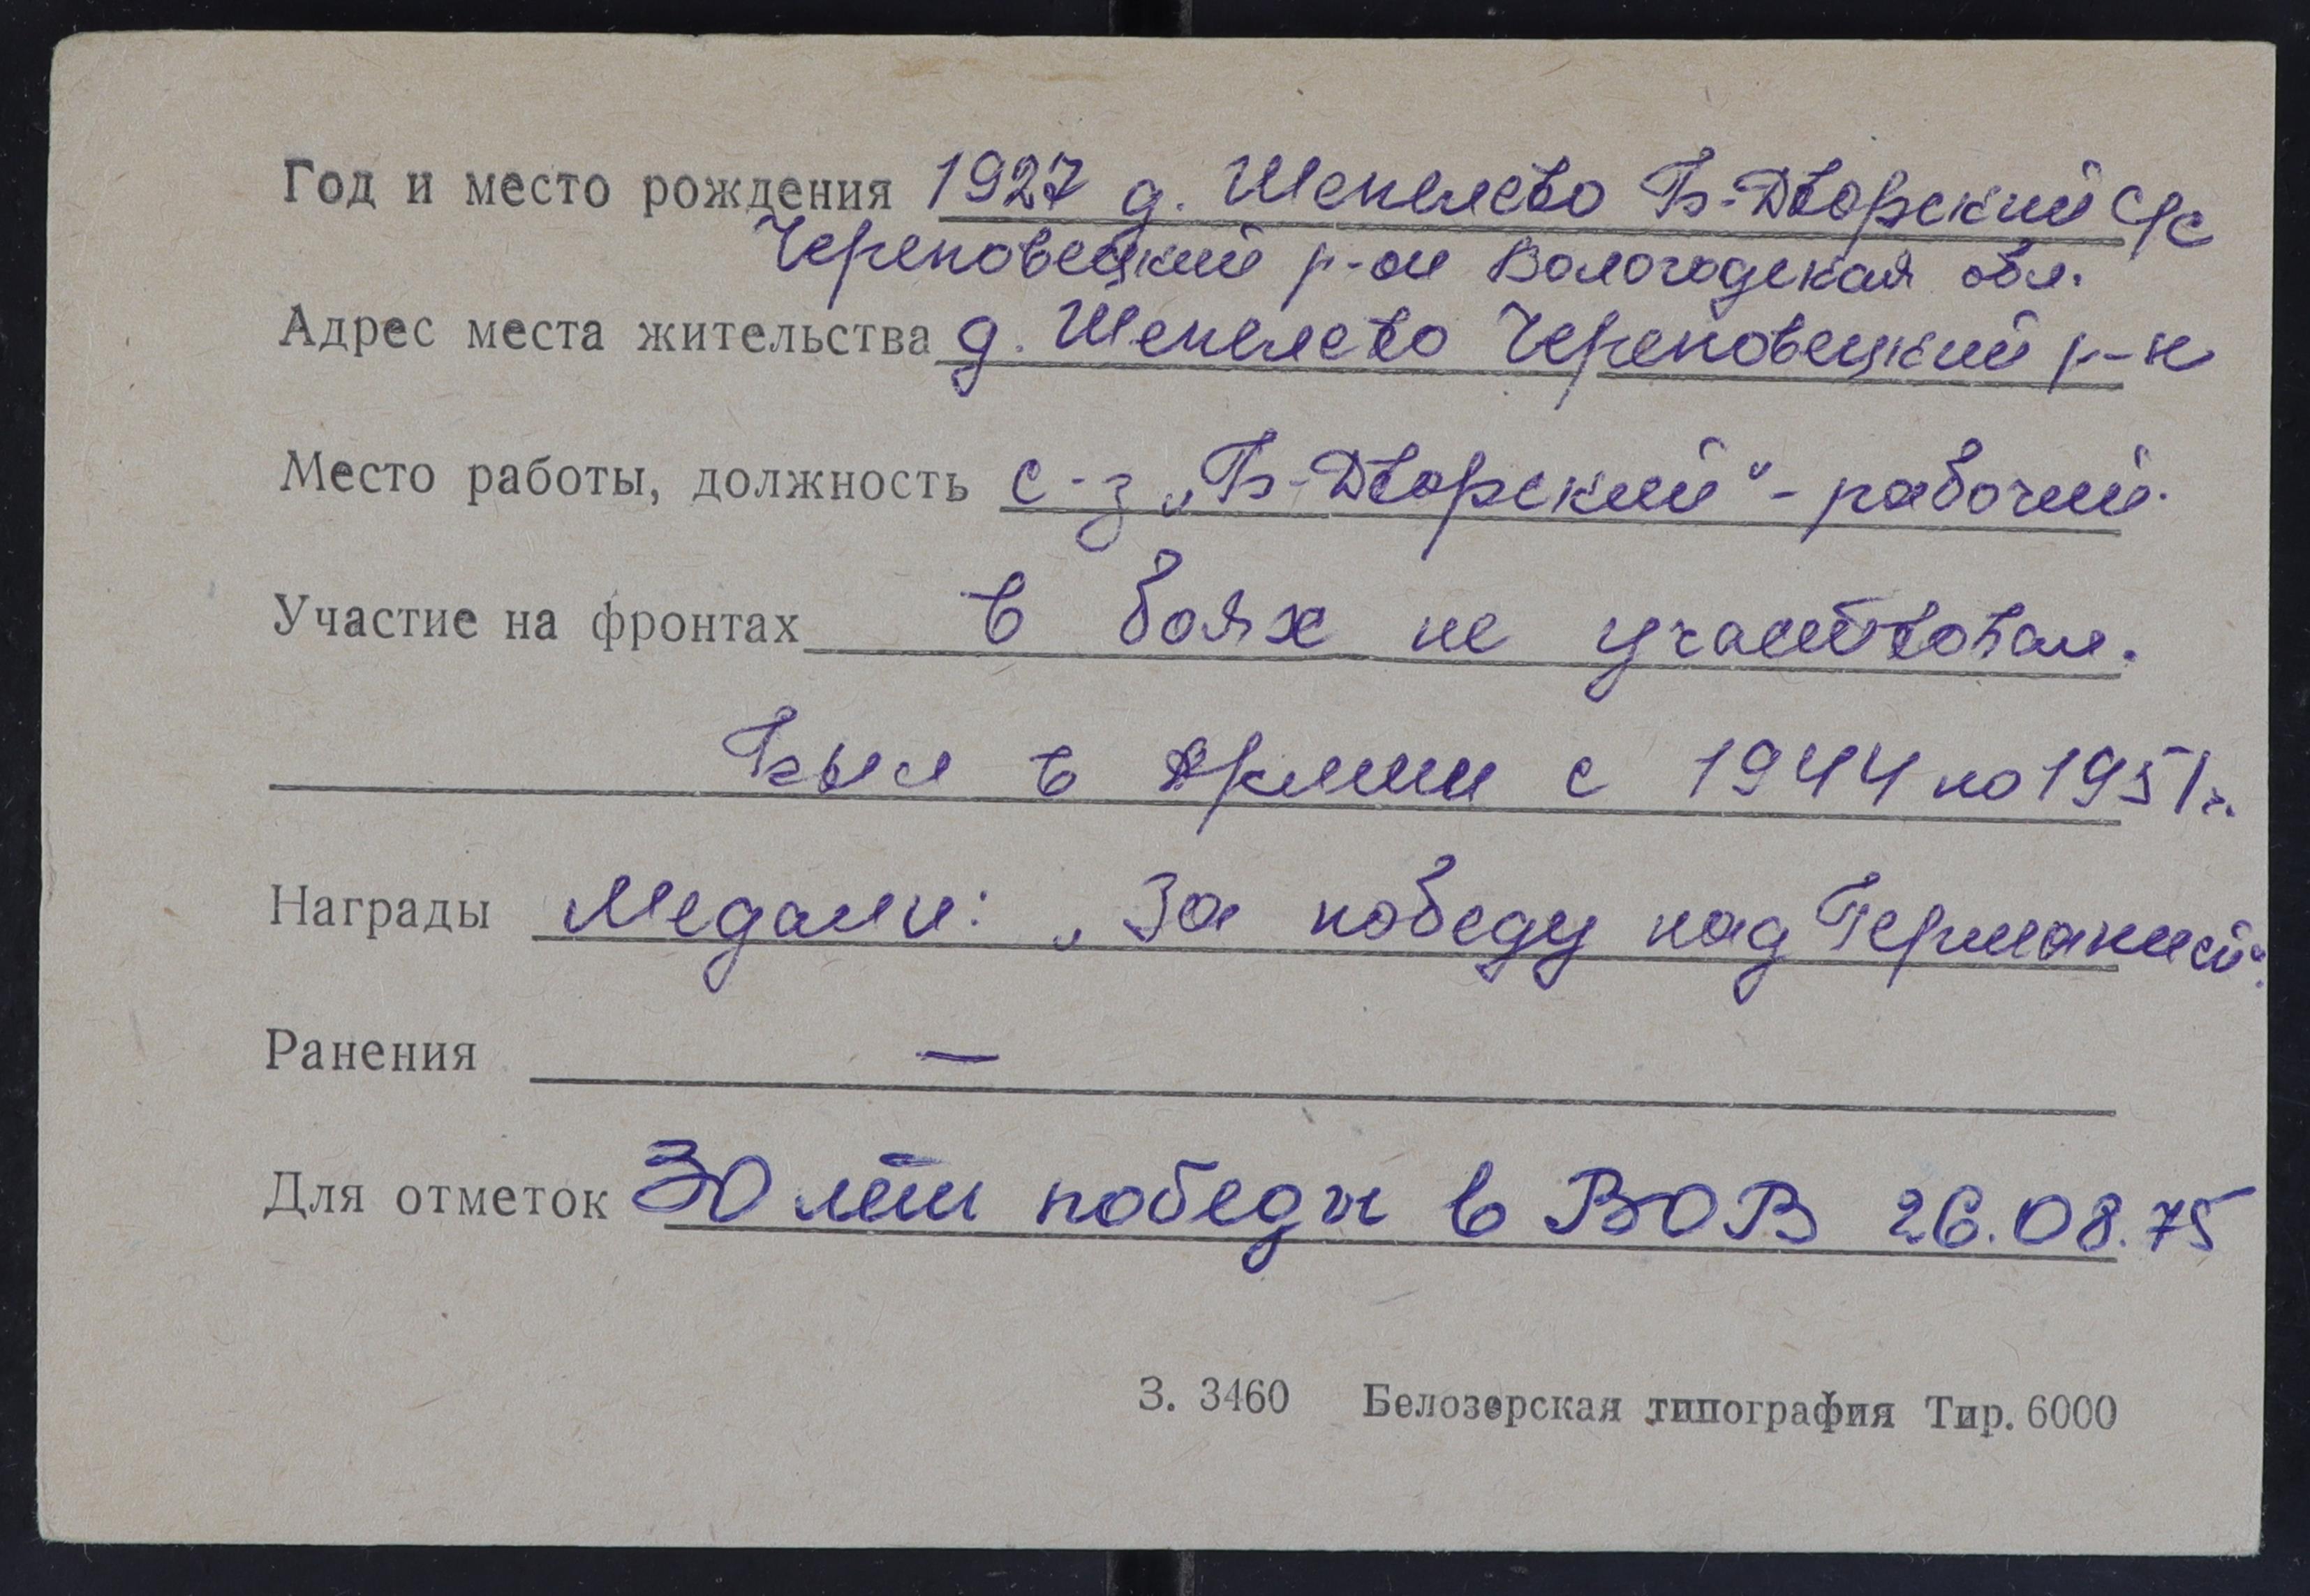 Год и место рождения 1927 д. Шепелево Б-Дворский с/с
Череповецкий р-он Вологодская обл.
Адрес места жительства д. Шепелево Череповецкий р-н
Место работы, должность с-з „Б-Дворский"-рабочий.
Участие на фронтах в боях не участвовал.
Был в Армии с 1944 по 1951г.
Награды Медали: „За победу над Германией".
Ранения —
Для отметок 30 лет победы в ВОВ 26.08.75
З. 3460 Белозерская типография Тир. 6000